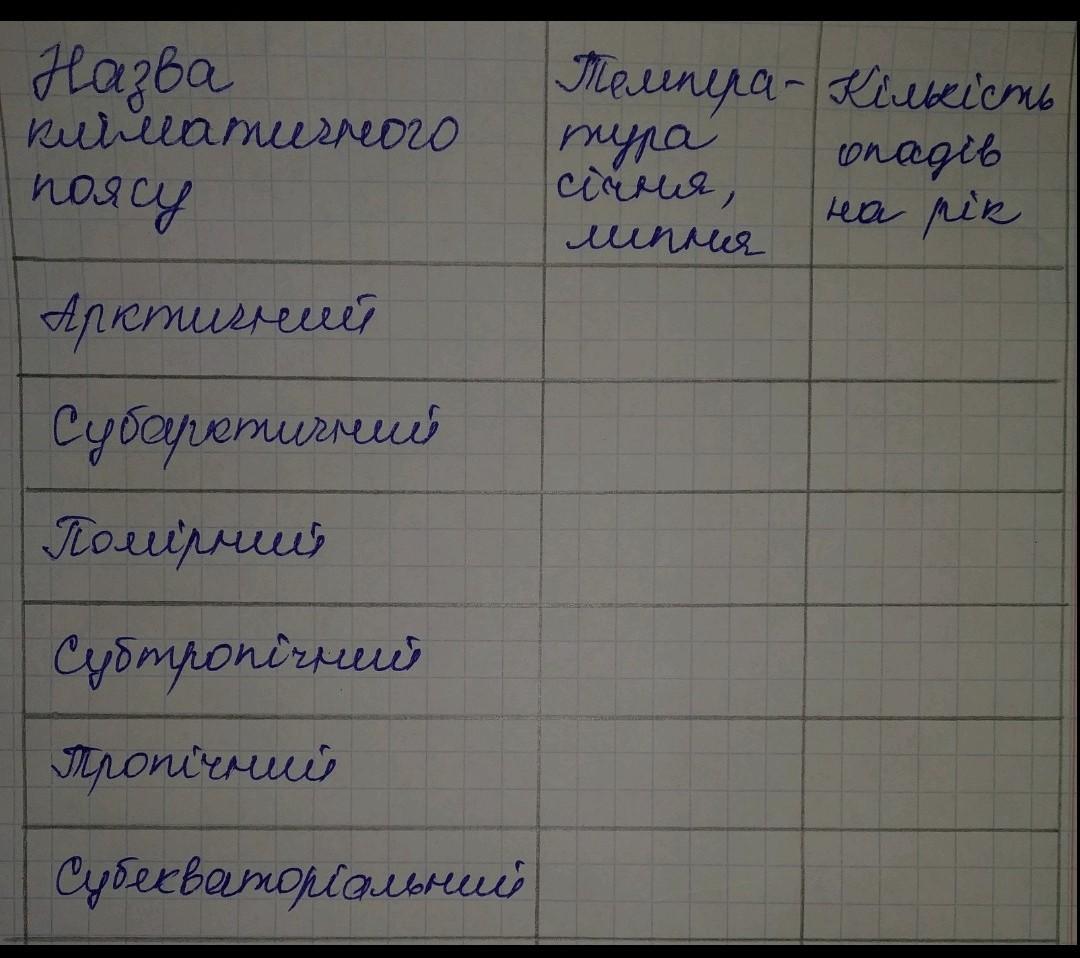 Назва
кліматичного
поясу
Темпера-
тура
січня,
липня
Кількість
опадів
на рік
Арктичний
Субарктичний
Помірний
Субтропічний
Тропічний
Субекваторіальний